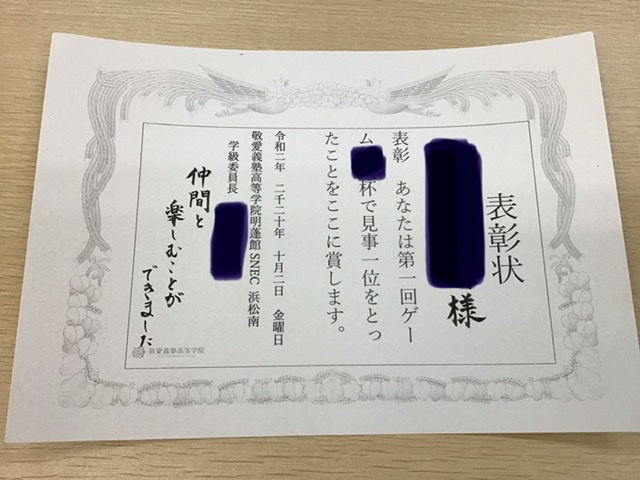 表彰状
様
表彰 あなたは第一回ゲー
ム 杯で見事一位をとっ
たことをここに賞します。
令和二年 二千二十年 十月二日 金曜日
敬愛義塾高等学院明蓬館SNEC 浜松南
学級委員長
仲間と
楽しむことが
できました
敬愛義塾高等学院